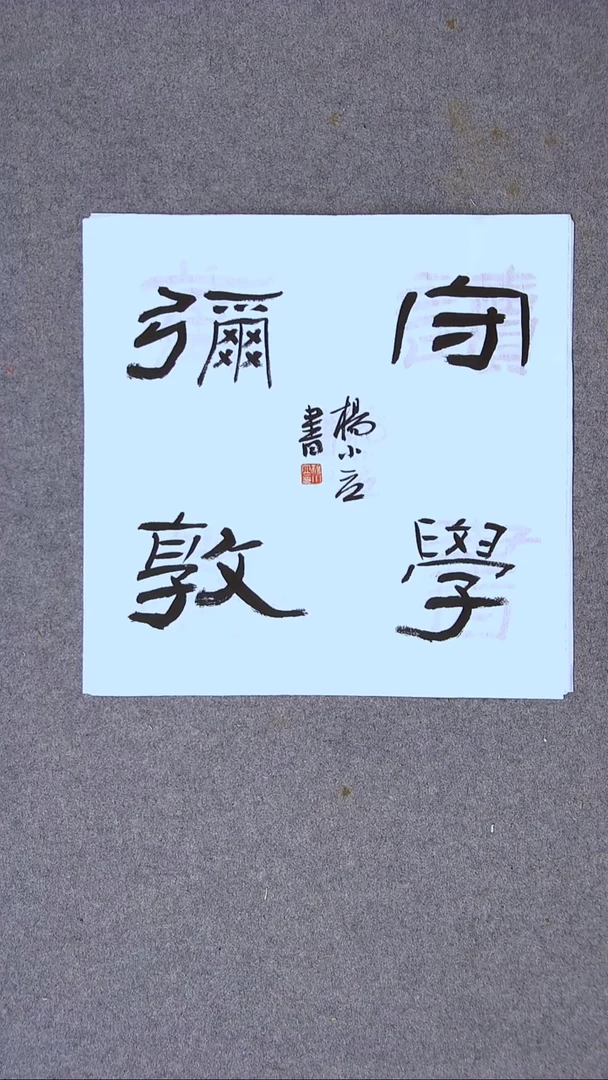 守學
彌敦
楊小
書